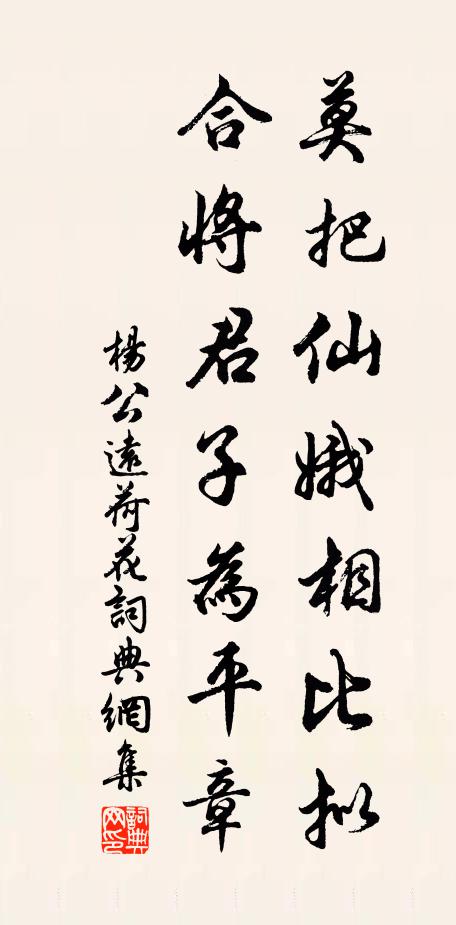 莫把仙娥相比拟
合將君子為平章
楊公遠荷花詞典網集
詞典網印